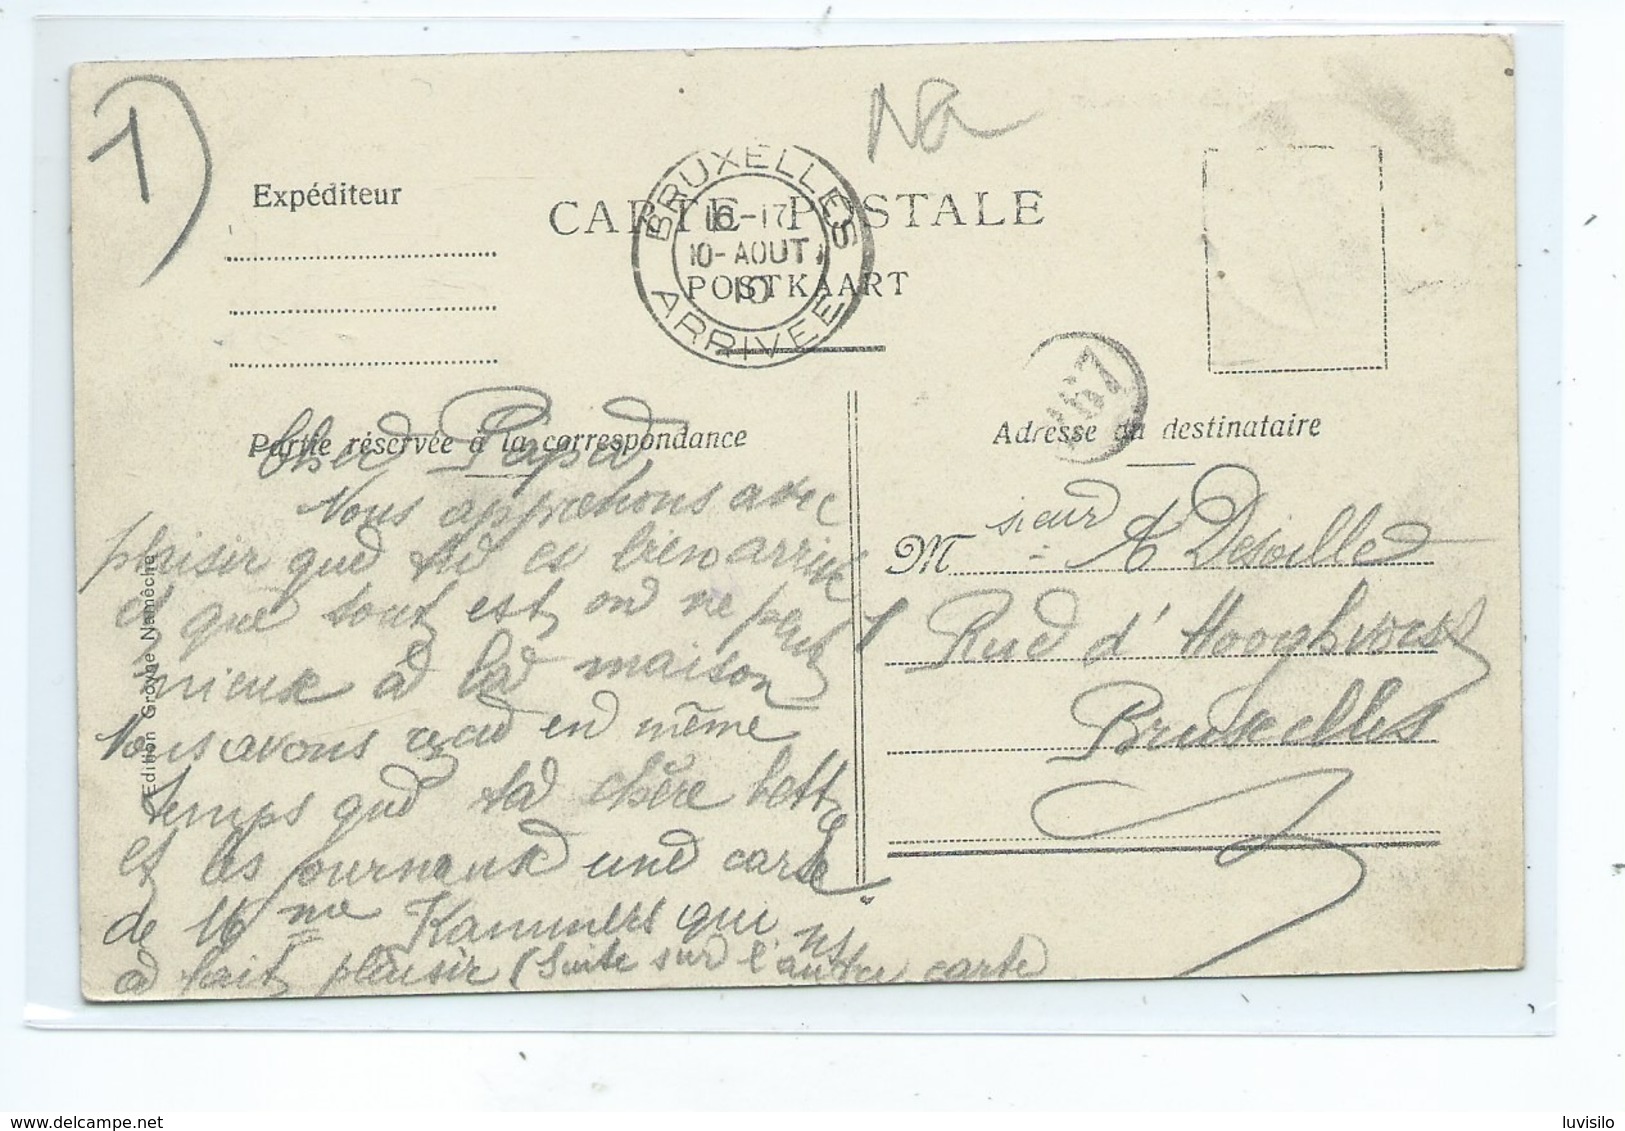 1)
Na
Expéditeur
CARTE POSTALE
POSTKAART
BRUXELLES
16-17
10-AOUT
10
ARRIVEE
167
Partie réservée à la correspondance
Adresse du destinataire
Cher Papa
Nous apprenons avec
plaisir que tu es bien arrivé
et que tout est on ne peut
mieux à la maison
Nous avons reçu en même
temps que ta chère lettre
et les journaux une carte
de Mme Kammers qui ns
a fait plaisir (Suite sur l'autre carte
Monsieur A Desoille
Rue d'Hooghvorst
Bruxelles
Edition Groyne Namêche
delcampe.net
luvisilo